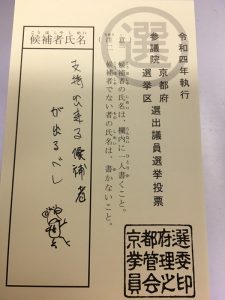 選
令和四年執行
参議院京都府選出議員選挙投票
選挙区
注意
一 候補者の氏名は、欄内に一人書くこと。
二 候補者でない者の氏名は、書かないこと。
こうほしゃしめい
候補者氏名
支持出来る候補者
が出るべし
京都府選挙管理委員会之印